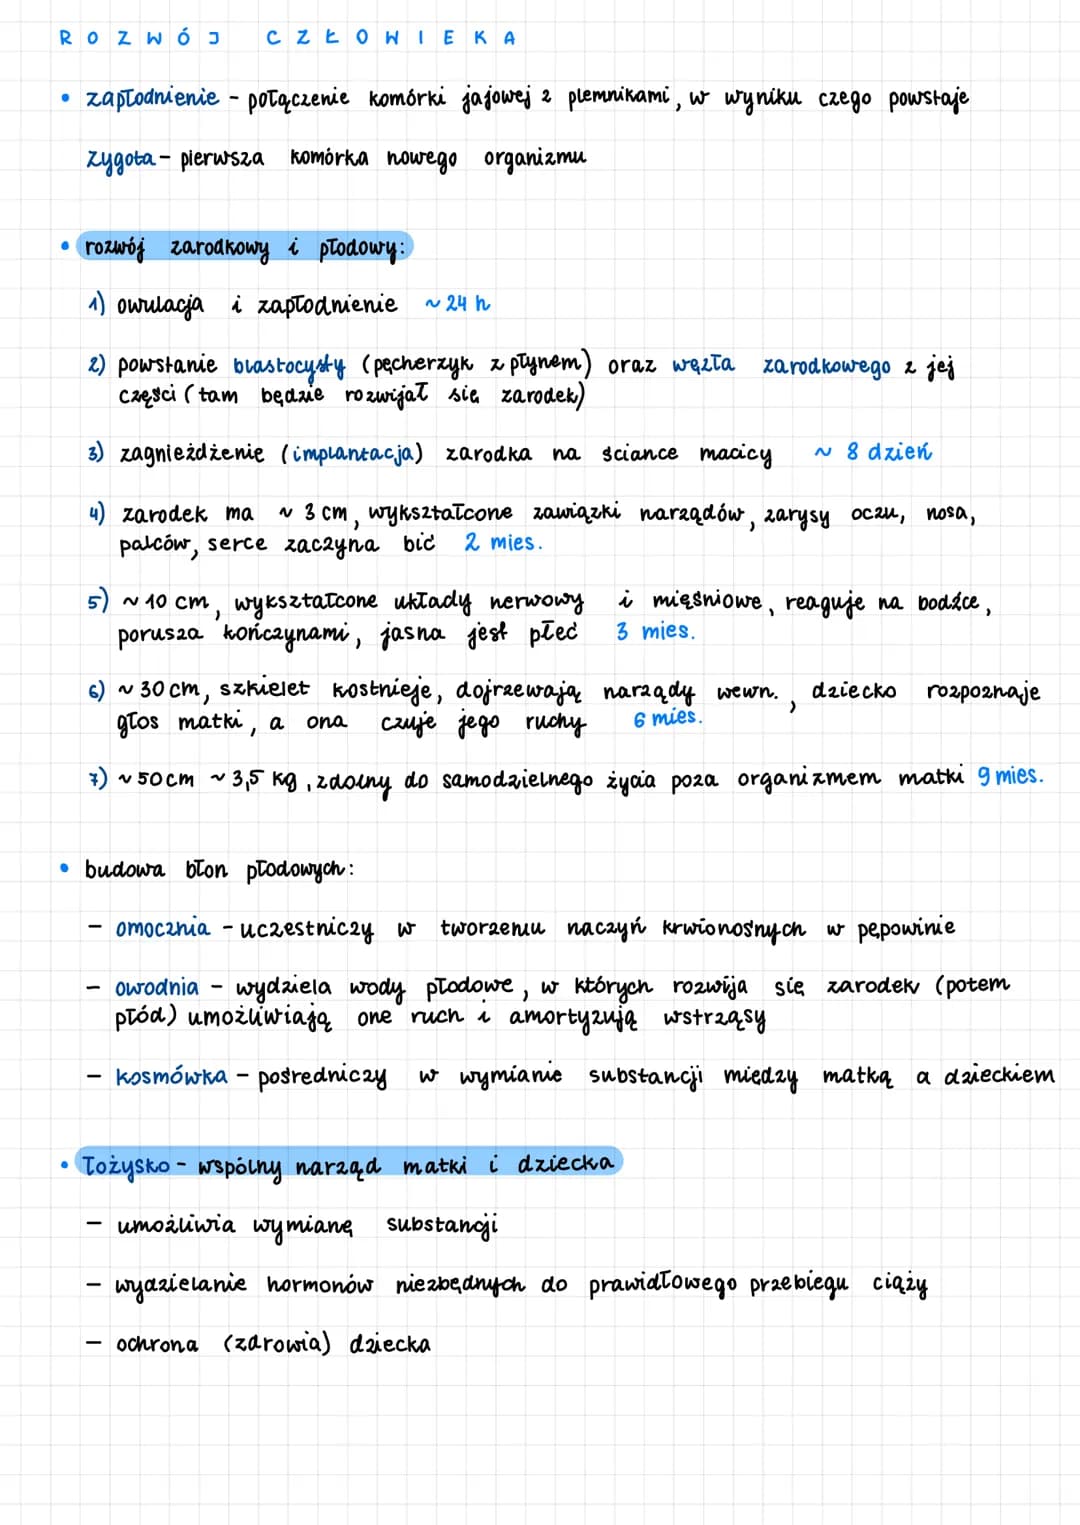 ROZWÓJ CZŁOWIEKA
• zapłodnienie - połączenie komórki jajowej z plemnikami, w wyniku czego powstaje
zygota - pierwsza komórka nowego organizmu
• rozwój zarodkowy i płodowy:
1) owulacja i zapłodnienie ~24 h
2) powstanie blastocysty (pęcherzyk z płynem) oraz węzła zarodkowego z jej
części (tam będzie rozwijał się zarodek)
3) zagnieżdżenie (implantacja) zarodka na ściance macicy ~ 8 dzień
4) zarodek ma ~ 3 cm, wykształcone zawiązki narządów, zarysy oczu, nosa,
palców, serce zaczyna bić 2 mies.
5) ~10 cm, wykształcone układy nerwowy i mięśniowe, reaguje na bodźce,
porusza kończynami, jasna jest płeć 3 mies.
6) ~30 cm, szkielet kostnieje, dojrzewają narządy wewn., dziecko rozpoznaje
głos matki, a ona czuje jego ruchy 6 mies.
7) ~50cm ~3,5 kg, zdolny do samodzielnego życia poza organizmem matki 9 mies.
• budowa błon płodowych:
- omocznia - uczestniczy w tworzeniu naczyń krwionośnych w pępowinie
- owodnia - wydziela wody płodowe, w których rozwija się zarodek (potem
płód) umożliwiają one ruch i amortyzują wstrząsy
- kosmówka - pośredniczy w wymianie substancji między matką a dzieckiem
• łożysko - wspólny narząd matki i dziecka
- umożliwia wymianę substancji
- wydzielanie hormonów niezbędnych do prawidłowego przebiegu ciąży
- ochrona (zdrowia) dziecka